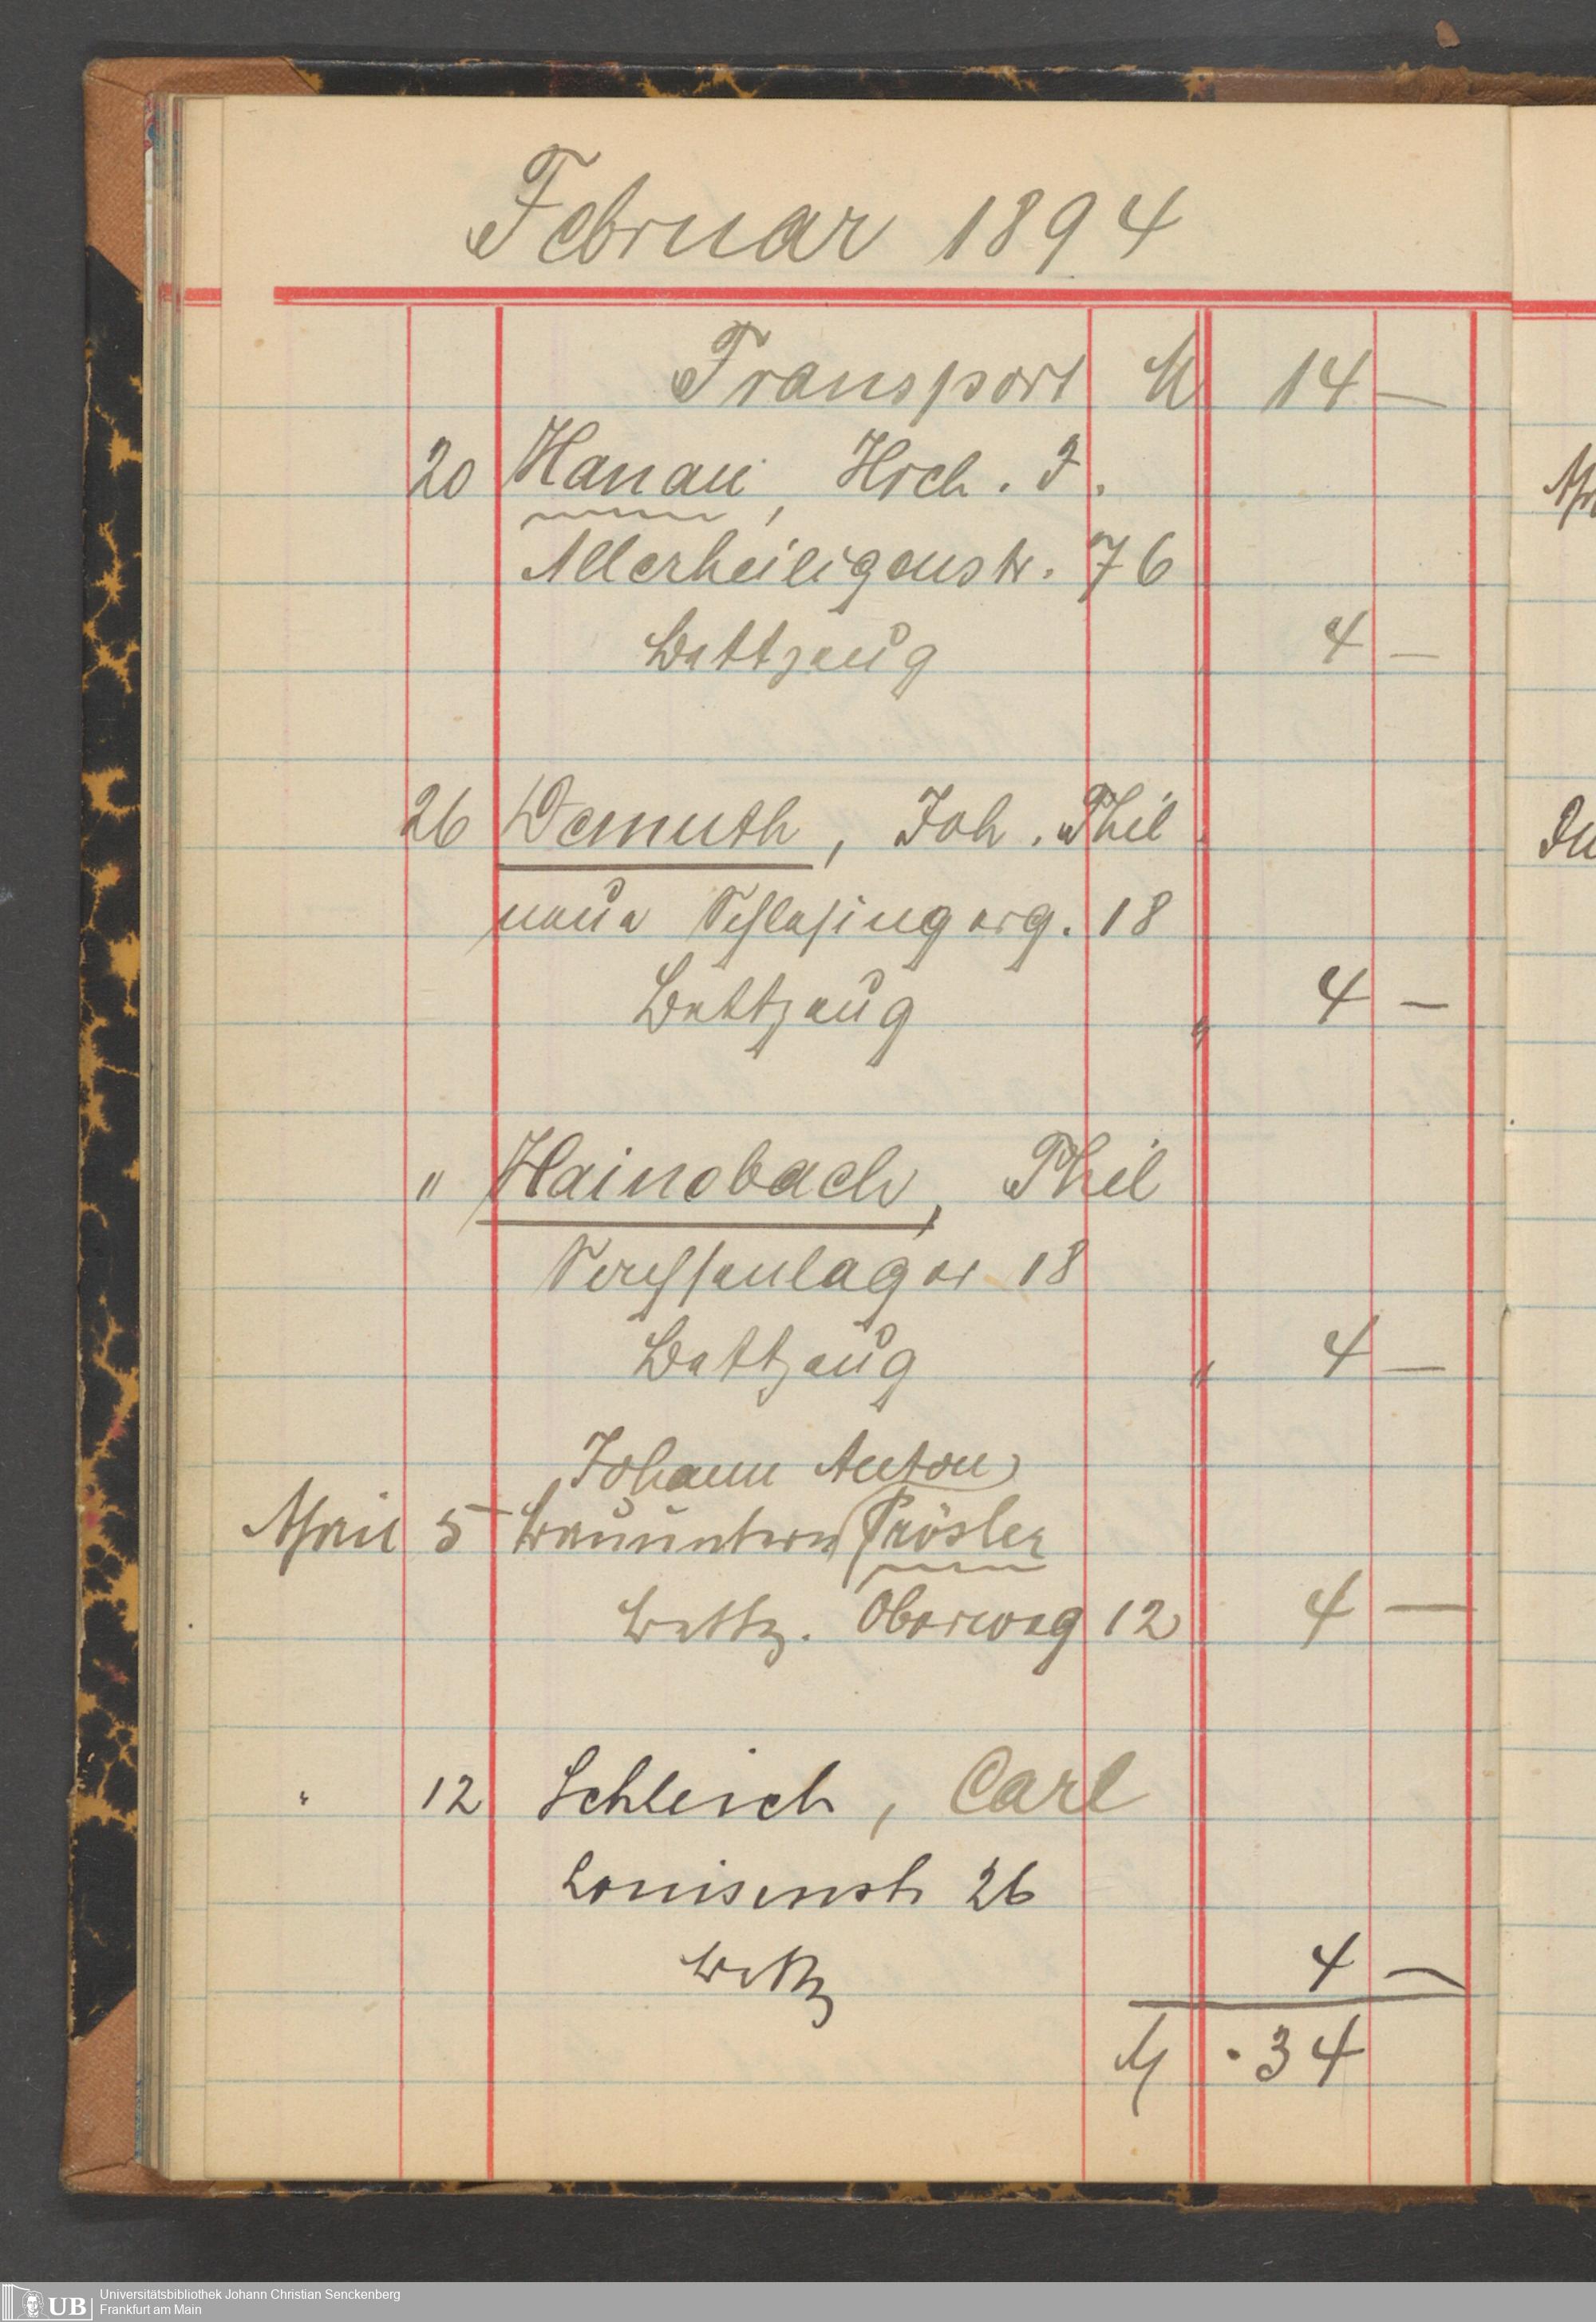 Februar 1894
Transport M 14 —
20 Hanau, Hrch. J.
Allerheiligenstr. 76
Bettzeug 4 —
26 Demuth, Joh. Phil.
neue Schlesingerg. 18
Bettzeug " 4 —
" Hainebach, Phil
Sachsenlager 18
Bettzeug " 4 —
Johann Anton
April 5 Prösler
Bettz. Oberweg 12 4 —
" 12 Schleich, Carl
Louisenstr 26
Bettz 4 —
M. 34
UB Universitätsbibliothek Johann Christian Senckenberg
Frankfurt am Main